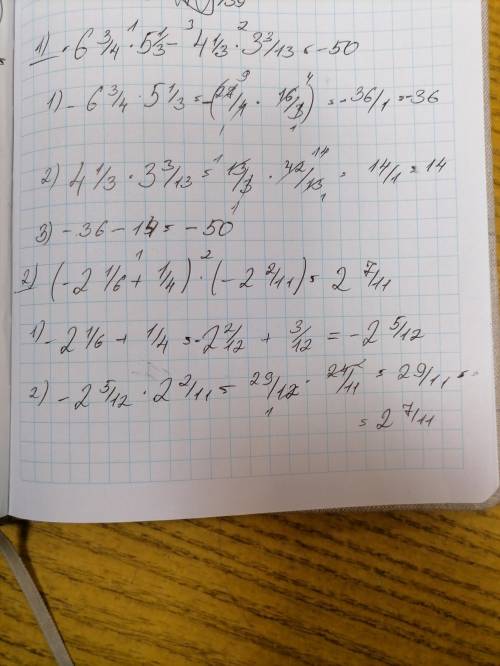 1) -6 3/4 · 5 1/3 - 4 1/3 · 3 3/13 = -50
1) -6 3/4 · 5 1/3 = -(27/4 · 16/3) = -36/1 = -36
2) 4 1/3 · 3 3/13 = 13/3 · 42/13 = 14/1 = 14
3) -36 - 14 = -50
2) (-2 1/6 + 1/4) · (-2 2/11) = 2 7/11
1) -2 1/6 + 1/4 = -2 2/12 + 3/12 = -2 5/12
2) -2 5/12 · 2 2/11 = 29/12 · 24/11 = 29/11 =
= 2 7/11